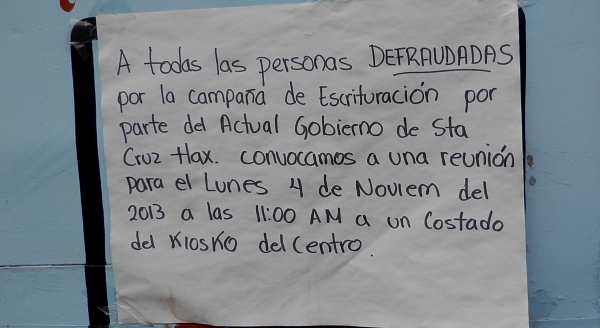 A todas las personas DEFRAUDADAS
por la campaña de Escrituración por
parte del Actual Gobierno de Sta
Cruz tlax. convocamos a una reunión
para el Lunes 4 de Noviem del
2013 a las 11:00 AM a un Costado
del KiosKo del Centro.